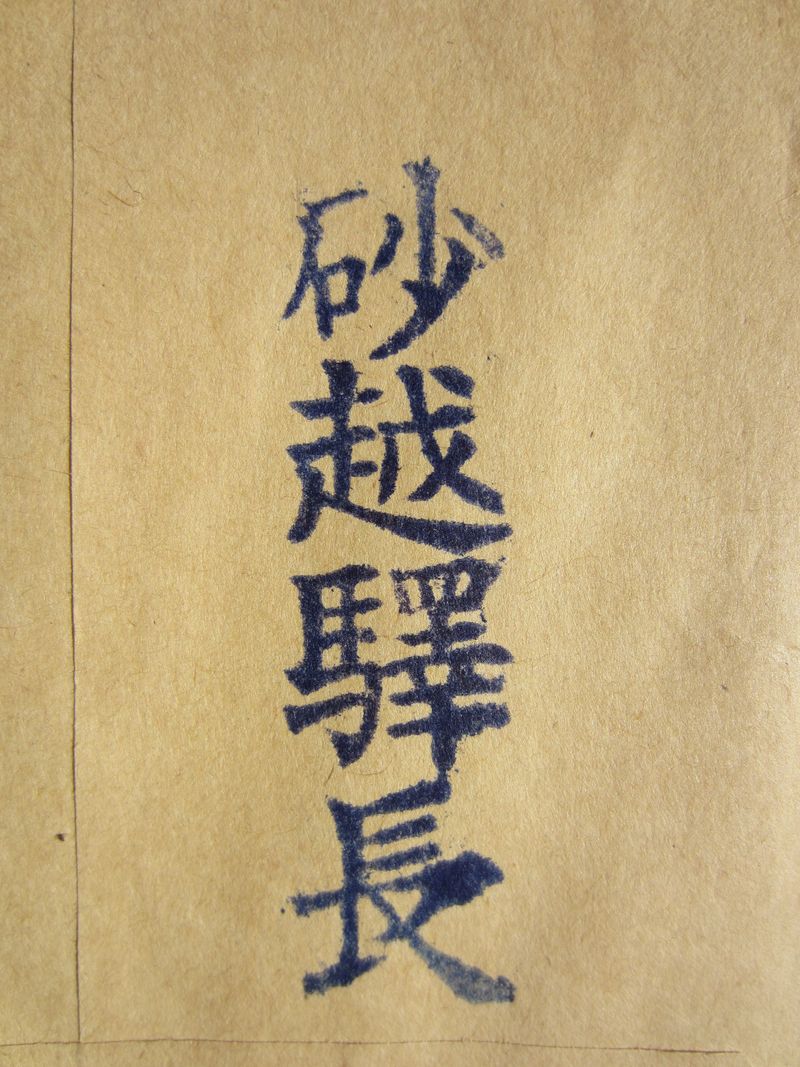 砂越驛長